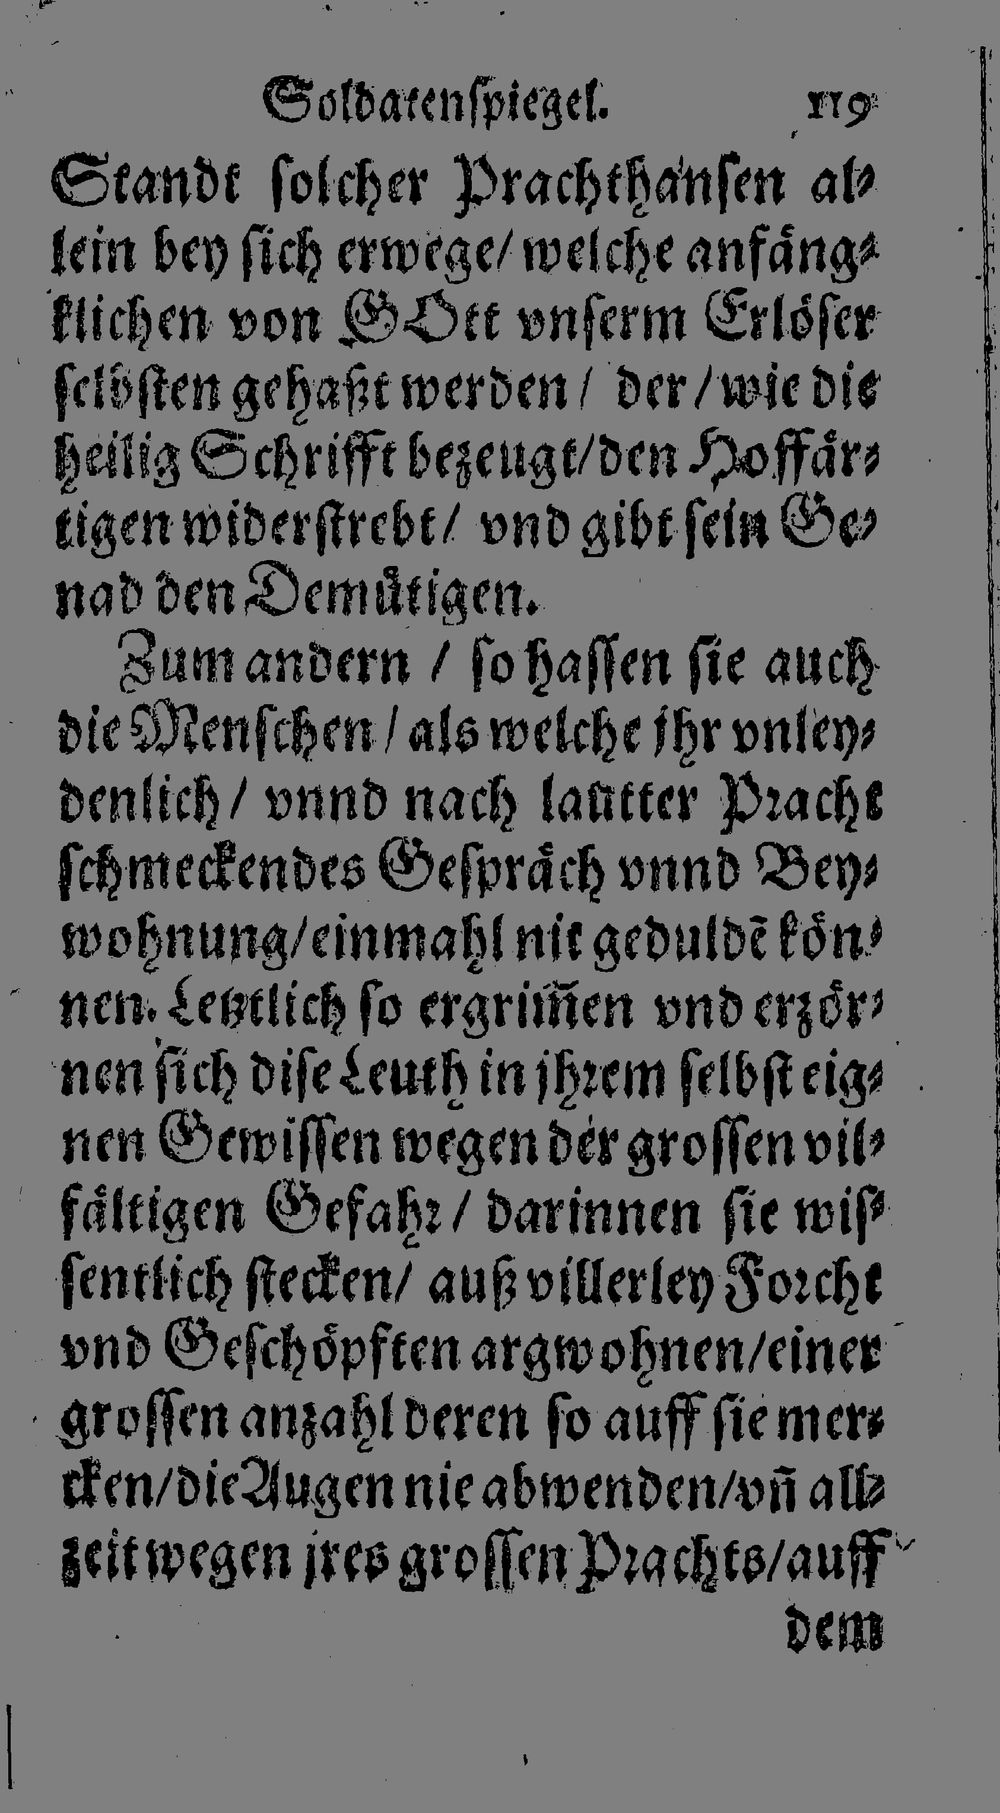 Soldatenſpiegel. 119
Standt ſolcher Prachthanſen al⸗
lein bey ſich erwege/ welche anfaͤng⸗
klichen von GOtt vnſerm Erloͤſer
ſelbſten gehaßt werden/ der/ wie die
heilig Schrifft bezeugt/ den Hoffaͤr⸗
tigen widerſtrebt/ vnd gibt ſein Ge⸗
nad den Demuͤtigen.
Zum andern / ſo haſſen ſie auch
die Menſchen/ als welche jhr vnley⸗
denlich/ vnnd nach lautter Pracht
ſchmeckendes Geſpraͤch vnnd Bey⸗
wohnung/ einmahl nit geduldẽ koͤn⸗
nen. Letztlich ſo ergrim̃en vnd erzoͤr⸗
nen ſich diſe Leuth in jhrem ſelbſt eig⸗
nen Gewiſſen wegen der groſſen vil⸗
faͤltigen Gefahr/ darinnen ſie wiſ⸗
ſentlich ſtecken/ auß villerley Forcht
vnd Geſchoͤpften argwohnen/ einer
groſſen anzahl deren ſo auff ſie mer⸗
cken/ die Augen nie abwenden/ vñ all⸗
zeit wegen jres groſſen Prachts/ auff
dem